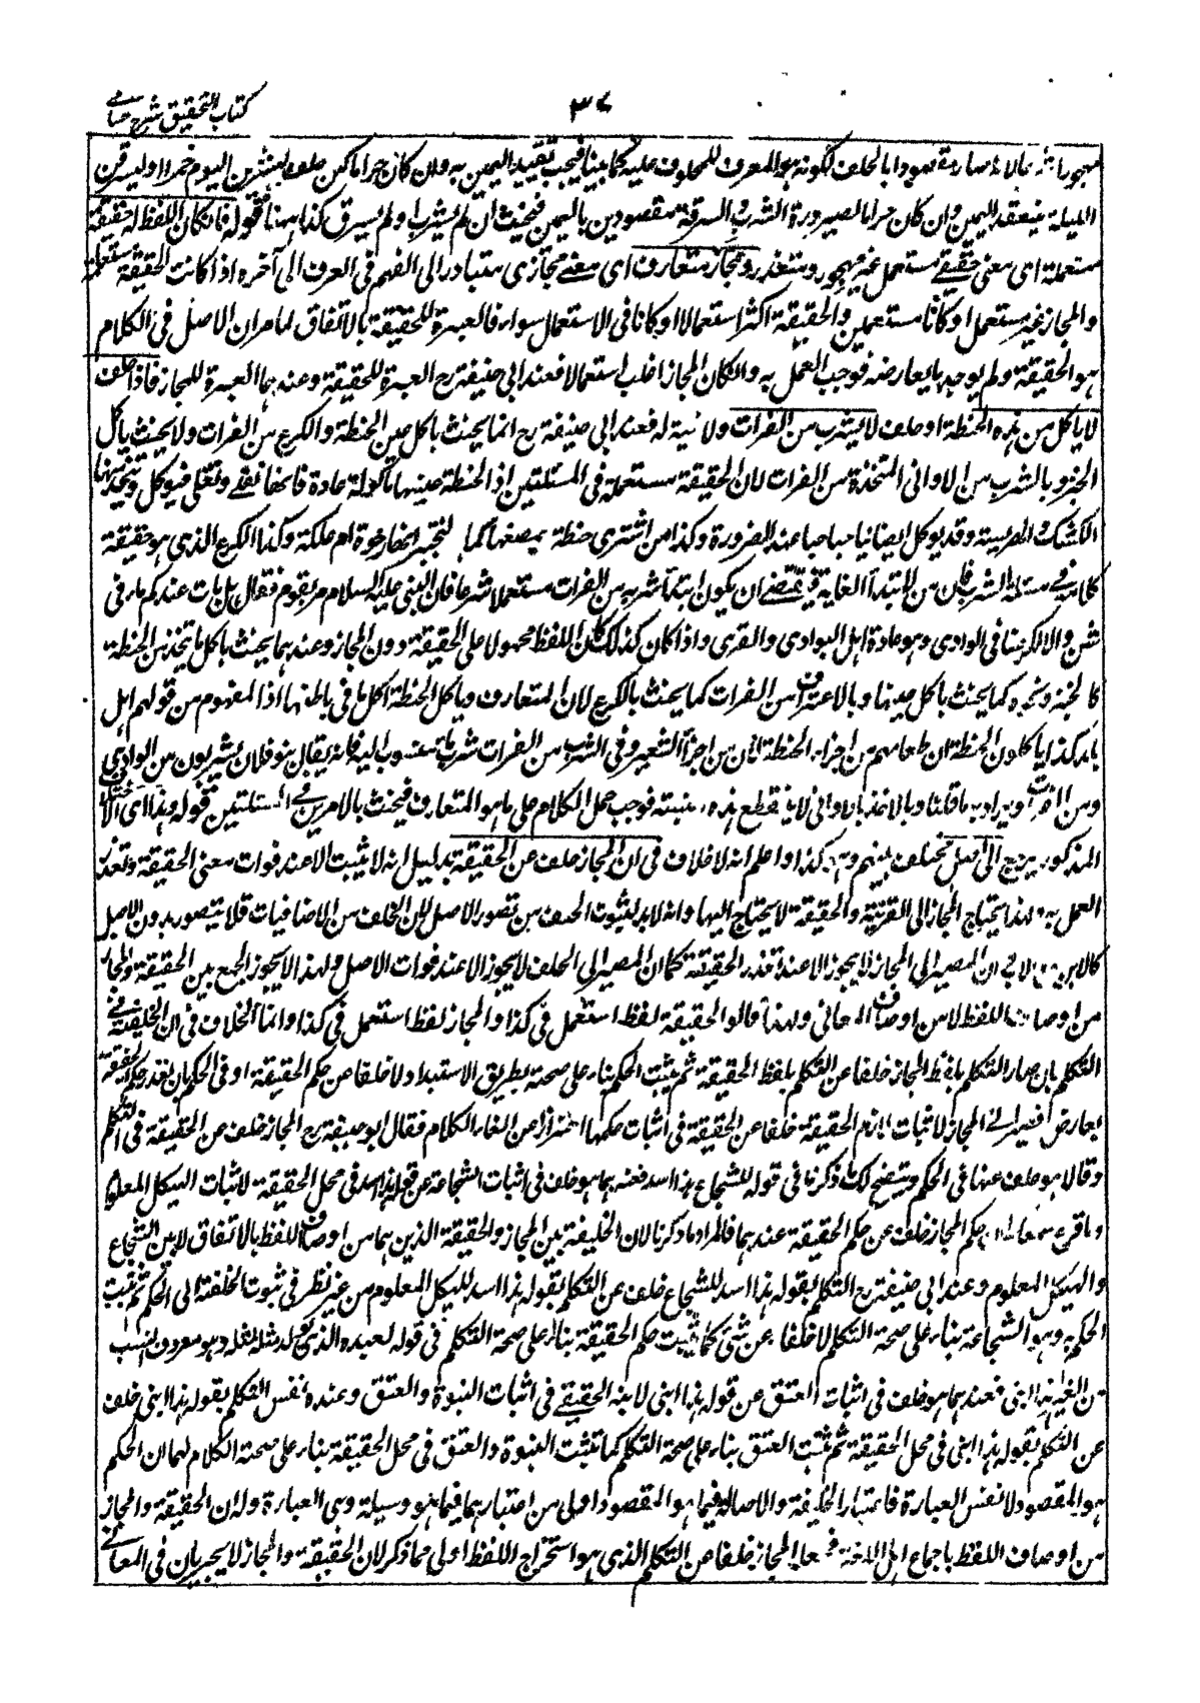 كتاب التحقيق شرح حسامي
٣٤
مهجورا شرعا لانه صار مقصودا بالحلف لكونه هو المعرف للمحلوف عليه كما بينا فيجب تقييد اليمين به وان كان حراما كمن حلف ليشربن اليوم خمرا او ليسرقن
الليلة ينعقد اليمين وان كان حراما لصيرورة الشرب والسرقة مقصودين باليمين فيحنث ان لم يشرب او لم يسرق كذا ههنا قوله فان كان اللفظ له حقيقة
مستعملة اى معنى حقيقى مستعمل غير مهجور ومتعذر ومجاز متعارف اى معنى مجازى متبادر الى الفهم فى العرف الى آخره اذا كانت الحقيقة مستعملة
والمجاز غير مستعمل او كانا مستعملين والحقيقة اكثر استعمالا او كانا فى الاستعمال سواء فالعبرة للحقيقة بالاتفاق لما مر ان الاصل فى الكلام
هو الحقيقة ولم يوجد ما يعارضه فوجب العمل به وان كان المجاز اغلب استعمالا فعند ابى حنيفة رح العبرة للحقيقة وعندهما العبرة للمجاز فاذا حلف
لا ياكل من هذه الحنطة او حلف لا يشرب من الفرات ولا نية له فعند ابى حنيفة رح انما يحنث باكل عين الحنطة والكرع من الفرات ولا يحنث باكل
الخبز وبالشرب من الاوانى المتخذة من الفرات لان الحقيقة مستعملة فى المسئلتين اذ الحنطة عينها ماكولة عادة فانها تقلى وتغلى فيوكل ويتخذ منها
الكشك والهريسة وقد يوكل ايضا نيا حبا حبا عند الضرورة وكذا من اشترى حنطة يمضغها كما هى ليختبر انها رخوة ام علكة وكذا الكرع الذى هو حقيقة
كلامه فى مسئلة الشرب فان من لابتداء الغاية فيقتضى ان يكون ابتداء شربه من الفرات مستعملا شرعا فان النبى عليه السلام مر بقوم فقال هل بات عندكم ماء فى
شن والا كرعنا فى الوادى وهو عادة اهل البوادى والقرى واذا كان كذلك كان اللفظ محمولا على الحقيقة دون المجاز وعندهما يحنث باكل ما يتخذ من الحنطة
كالخبز ونحوه كما يحنث باكل عينها وبالاغتراف من الفرات كما يحنث بالكرع لان المتعارف وياكل الحنطة اكل ما فى باطنها اذ المفهوم من قولهم اهل
بلد كذا ياكلون الحنطة ان طعامهم من اجزاء الحنطة لا من اجزاء الشعير وفى الشرب من الفرات شرب ماء منسوب اليه فانه يقال بنو فلان يشربون من الوادى
ومن الفرات ويراد به ما قلنا وبالاخذ بالاوانى لا ينقطع هذه النسبة فوجب حمل الكلام على ما هو المتعارف فيحنث بالامرين فى المسئلتين قوله وهذا اى الاختلاف
المذكور يرجع الى اصل مختلف بينهم وهو كذا واعلم انه لا خلاف فى ان المجاز خلف عن الحقيقة بدليل انه لا يثبت الا عند فوات معنى الحقيقة وتعذر
العمل به ولهذا يحتاج المجاز الى القرينة والحقيقة لا يحتاج اليها وانه لا بد لثبوت الخلف من تصور الاصل لان الخلف من الاضافيات فلا يتصور بدون الاصل
كالابن مع الاب وان المصير الى المجاز لا يجوز الا عند تعذر الحقيقة كما ان المصير الى الخلف لا يجوز الا عند فوات الاصل ولهذا لا يجوز الجمع بين الحقيقة والمجاز
من اوصاف اللفظ لا من اوصاف المعانى ولهذا قالوا الحقيقة لفظ استعمل فى كذا والمجاز لفظ استعمل فى كذا وانما الخلاف فى ان الخلفية فى
التكلم بان صار التكلم بلفظ المجاز خلفا عن التكلم بلفظ الحقيقة ثم يثبت الحكم بناء على صحته بطريق الاستبداد لا خلفا عن حكم الحقيقة او فى الحكم بان تعذر حكم الحقيقة
لعارض فصير الى المجاز لاثبات لازم الحقيقة خلفا عن الحقيقة فى اثبات حكمها احترازا عن الغاء الكلام فقال ابو حنيفة رح المجاز خلف عن الحقيقة فى التكلم
وقالا هو خلف عنها فى الحكم ويتضح لك ما ذكرنا فى قوله للشجاع هذا اسد فعندهما هو خلف فى اثبات الشجاعة عن قوله هذا اسد فى محل الحقيقة لاثبات الهيكل المعلوم
حكم المجاز خلف عن حكم الحقيقة عندهما فالمراد ما ذكرنا لان الخليفة بين المجاز والحقيقة الذين هما من اوصاف اللفظ بالاتفاق لا بين الشجاع
والهيكل المعلوم وعند ابى حنيفة رح التكلم بقوله هذا اسد للشجاع خلف عن التكلم بقوله هذا اسد للهيكل المعلوم من غير نظر فى ثبوت الخلفة الى الحكم ثم يثبت
الحكم به وهو الشجاعة بناء على صحة التكلم لا خلفا عن شئ كما يثبت حكم الحقيقة بناء على صحة التكلم فى قوله لعبده الذى يولد مثله لمثله وهو معروف النسب
من الغير هذا ابنى فعندهما هو خلف فى اثبات العتق عن قوله هذا ابنى لابنه الحقيقى فى اثبات البنوة والعتق وعنده نفس التكلم بقوله هذا ابنى خلف
عن التكلم بقوله هذا ابنى فى محل الحقيقة ثم يثبت العتق بناء على صحة التكلم كما تثبت البنوة والعتق فى محل الحقيقة بناء على صحة الكلام لهما ان الحكم
هو المقصود لا نفس العبارة فاعتبار الخلفية والاصالة فيما هو المقصود اولى من اعتبارهما فيما هو وسيلة وهى العبارة وله ان الحقيقة والمجاز
من اوصاف اللفظ باجماع اهل اللغة فجعل المجاز خلفا عن التكلم الذى هو استخراج اللفظ اولى مما ذكر لان الحقيقة والمجاز لا يجريان فى المعانى